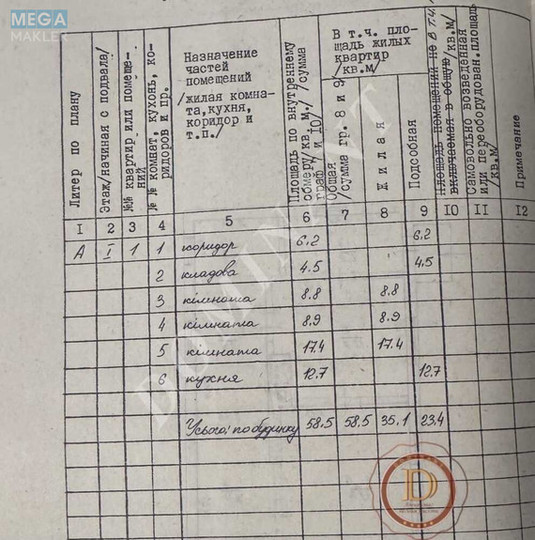 MEGA
MAKLER
Литер по плану
Этаж/начиная с подвала/
№№ квартир или помеще-
ний
№ № комнат, кухонь, ко-
ридоров и пр.
Назначение
частей
помещений
/жилая комна-
та,кухня,
коридор и
т.п./
Площадь по внутреннему
обмеру/кв. м./ /сумма
граф 7 и 10/
В т.ч. пло-
щадь жилых
квартир
/кв.м/
Общая
/сумма гр. 8 и 9/
Жилая
Подсобная
площадь помещений не
включаемая в общую/кв.м/
В т.ч.
самовольно возведенная
или переоборудован.площадь
/кв.м/
Примечание
I 2 3 4 5 6 7 8 9 IO II I2
А I 1 1 коридор 6.2 6.2
2 кладова 4.5 4.5
3 кімната 8.8 8.8
4 кімната 8.9 8.9
5 кімната 17.4 17.4
6 кухня 12.7 12.7
Усього: по будинку 58.5 58.5 35.1 23.4
D